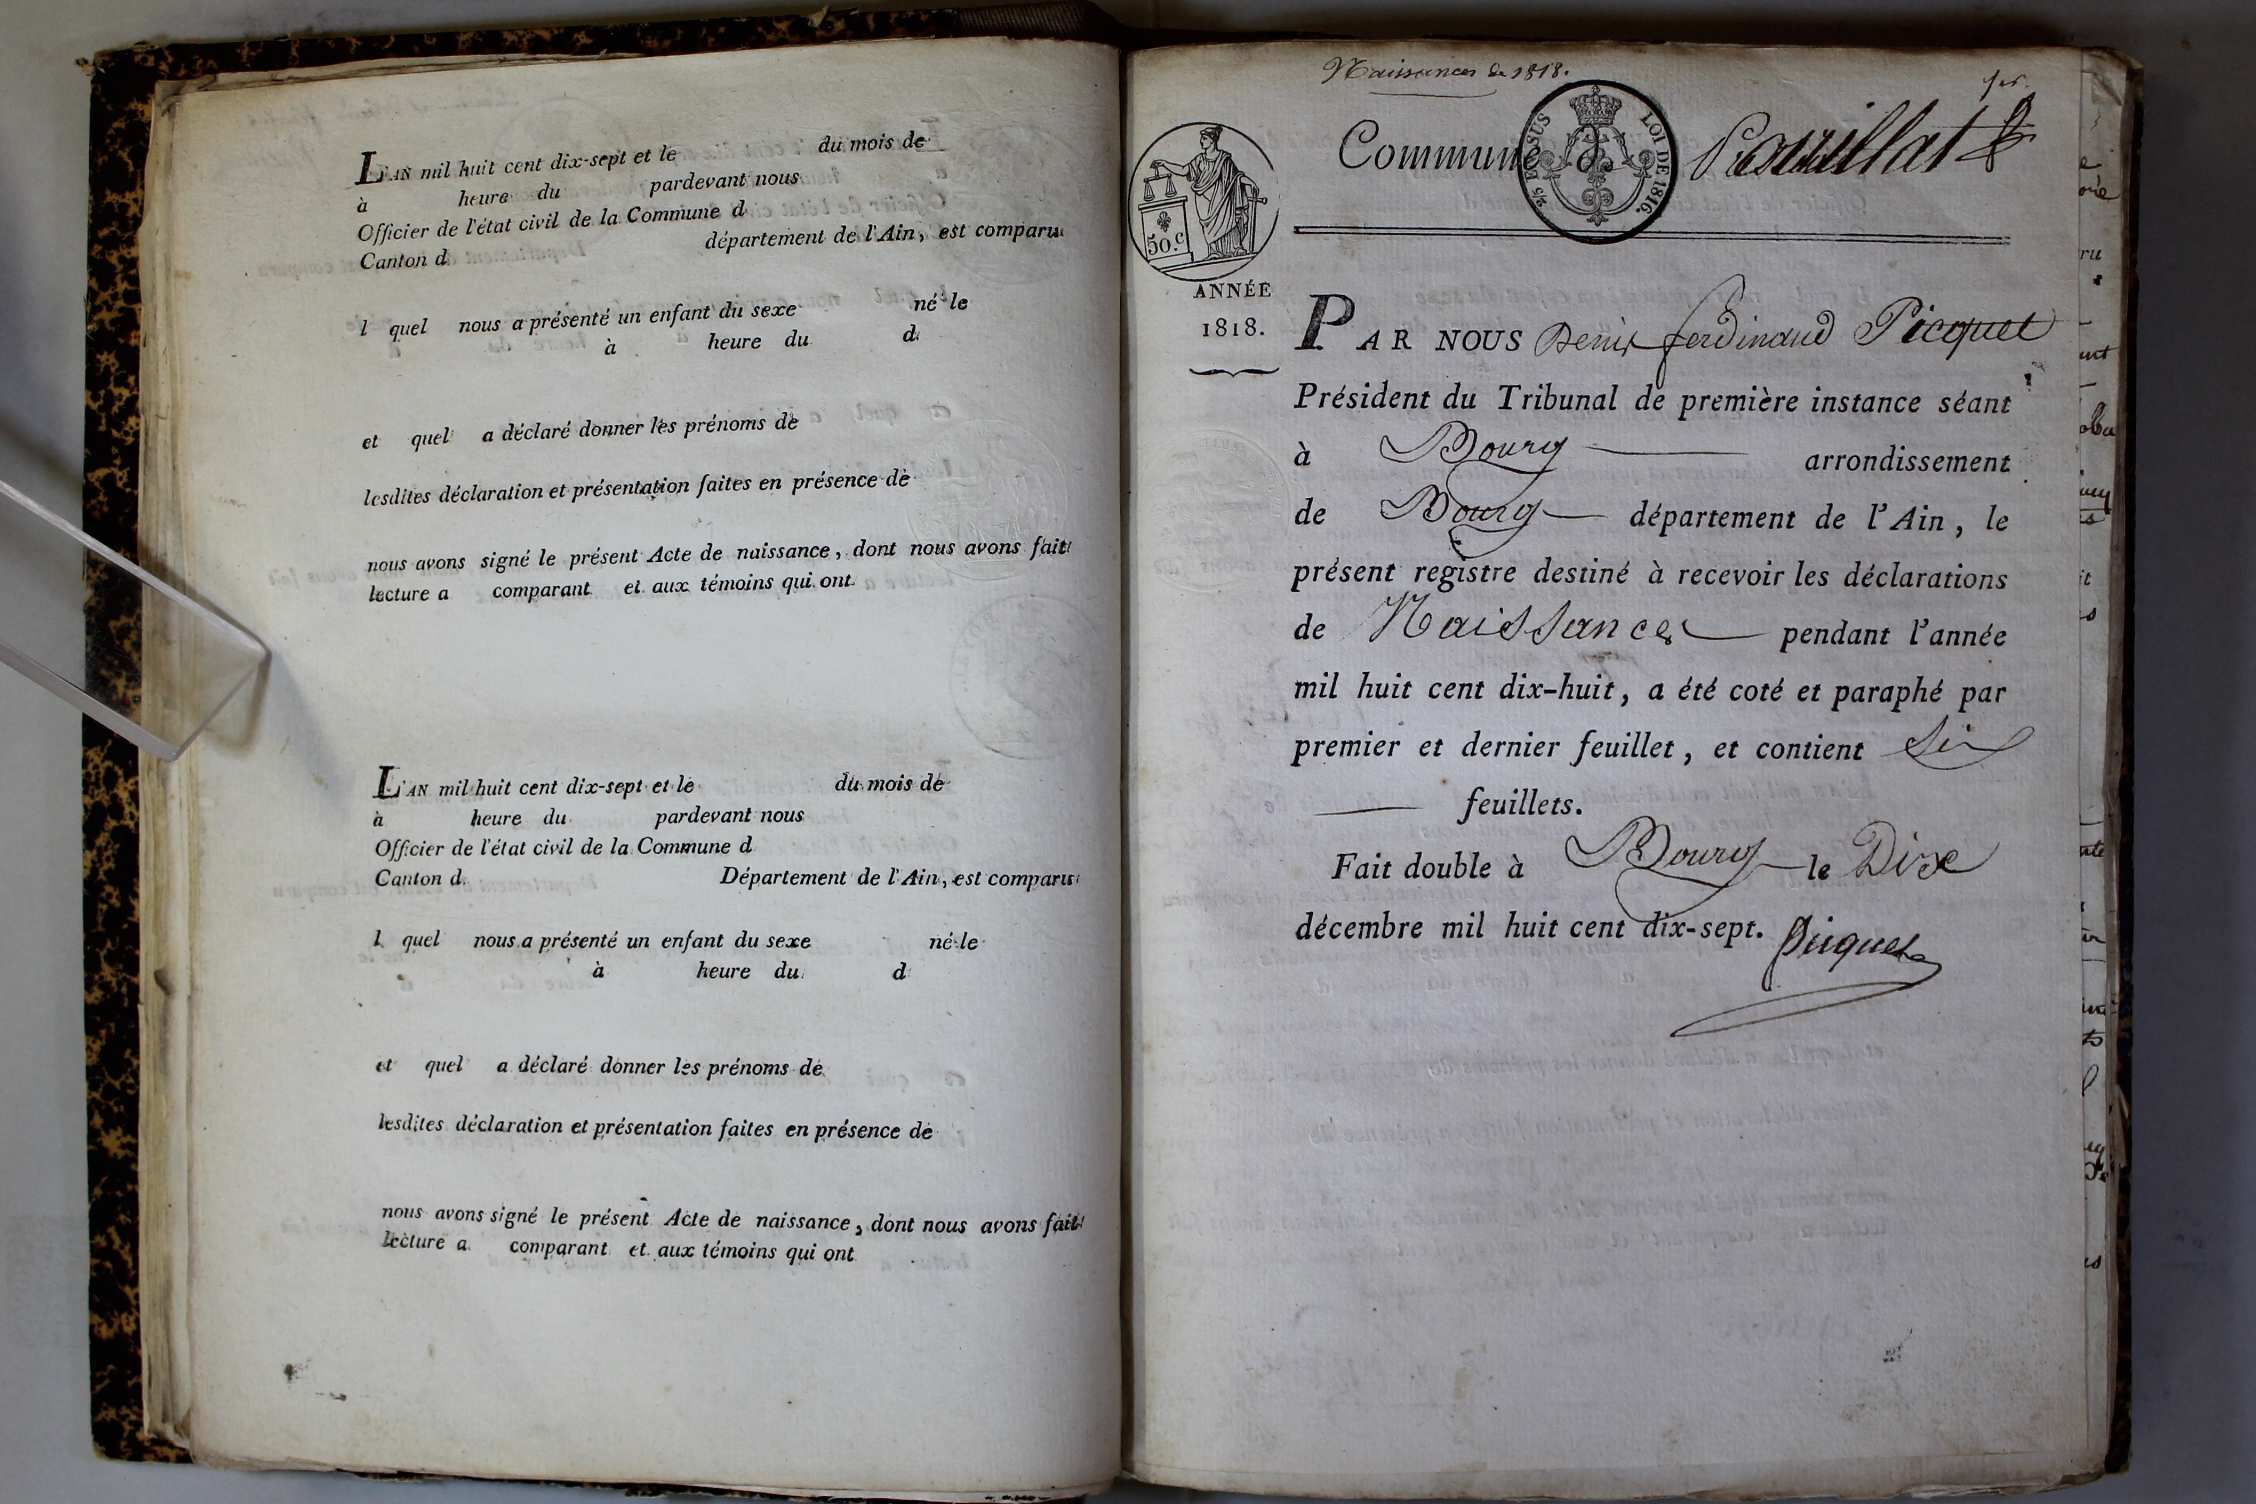 L'AN mil huit cent dix-sept et le du mois de
à heure du pardevant nous
Officier de l'état civil de la Commune d
Canton d département de l'Ain, est comparu
l quel nous a présenté un enfant du sexe né le
à heure du d
et quel a déclaré donner les prénoms de
lesdites déclaration et présentation faites en présence de
nous avons signé le présent Acte de naissance, dont nous avons fait
lecture a comparant et aux témoins qui ont
L'AN mil huit cent dix-sept et le du mois de
à heure du pardevant nous
Officier de l'état civil de la Commune d
Canton d Département de l'Ain, est comparu
l quel nous a présenté un enfant du sexe né le
à heure du d
et quel a déclaré donner les prénoms de
lesdites déclaration et présentation faites en présence de
nous avons signé le présent Acte de naissance, dont nous avons fait
lecture a comparant et aux témoins qui ont
Naissances de 1818.
Commune Pouillat
EN SUS LOI DE 1816.
50.c
ANNÉE
1818.
PAR NOUS Denis ferdinand Picquet
Président du Tribunal de première instance séant
à Bourg arrondissement
de Bourg département de l'Ain, le
présent registre destiné à recevoir les déclarations
de Naissances pendant l'année
mil huit cent dix-huit, a été coté et paraphé par
premier et dernier feuillet, et contient Six
feuillets.
Fait double à Bourg le Dix
décembre mil huit cent dix-sept. Picquet